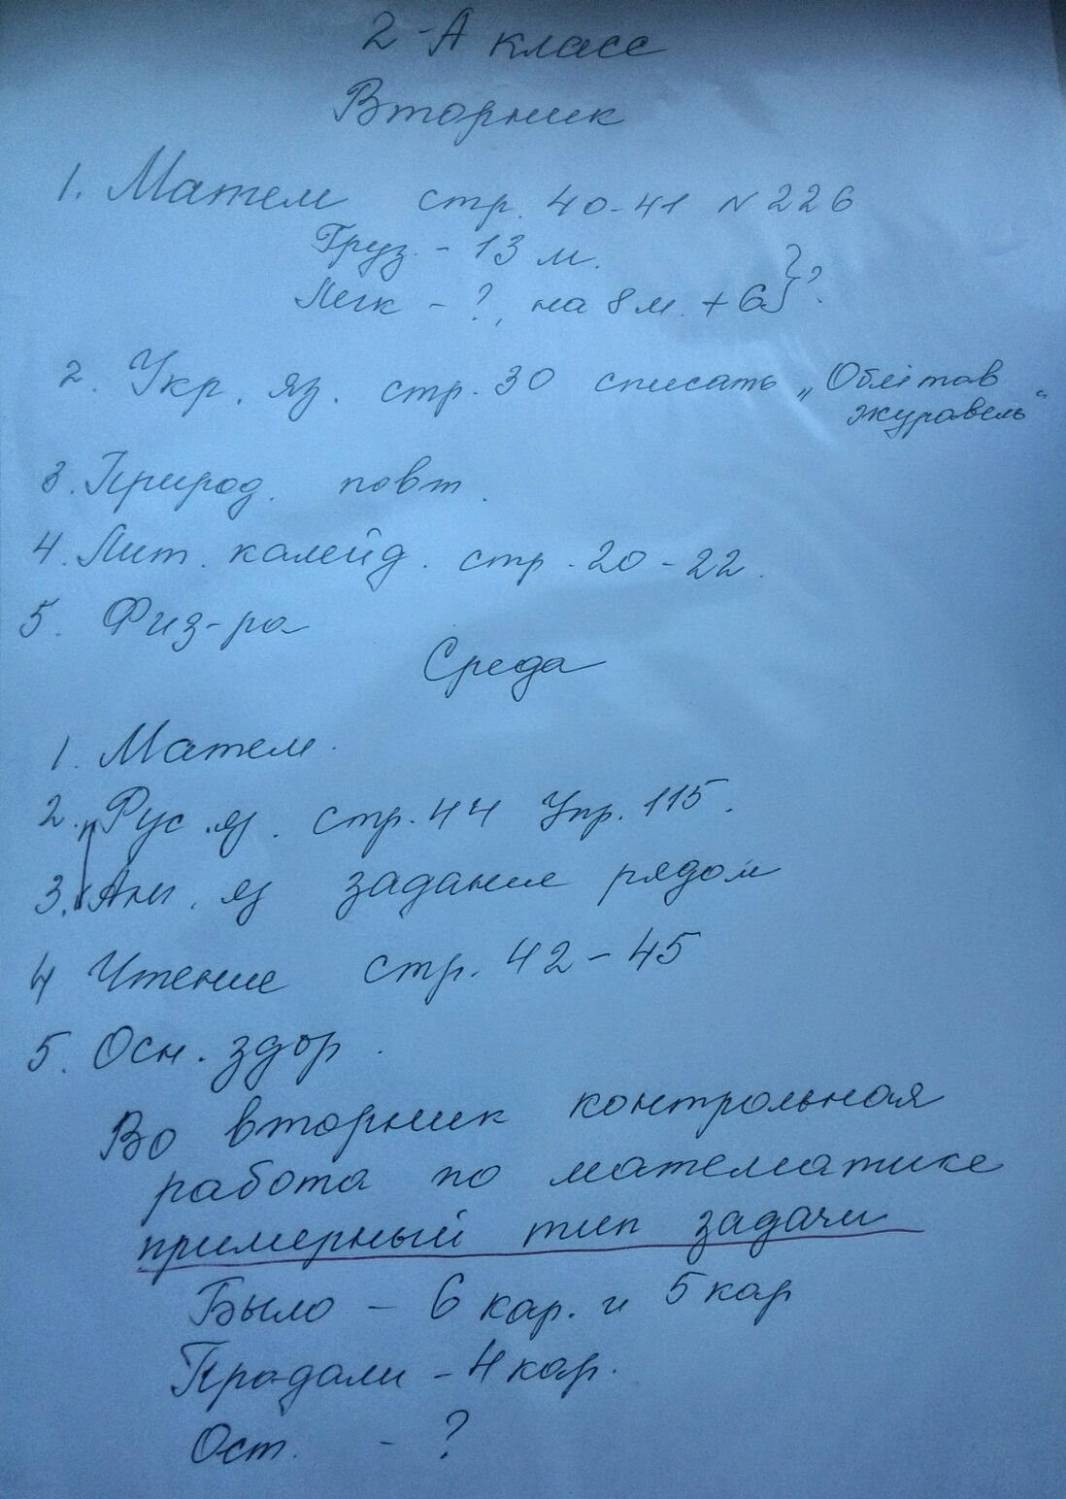 2-А класс
Вторник
1. Матем стр. 40-41 № 226
Груз. - 13 м.
Легк - ?, на 8 м. + б } ?
2. Укр. яз. стр. 30 списать „Облітав
журавель“
3. Природ. повт.
4. Лит. калейд. стр. 20-22.
5. Физ-ра
Среда
1. Матем.
2. Рус. яз. стр. 44 Упр. 115.
3. Анг. яз задание рядом
4 Чтение стр. 42-45
5. Осн. здор.
Во вторник контрольная
работа по математике
примерный тип задачи
Было - 6 кар. и 5 кар
Продали - 4 кар.
Ост. - ?